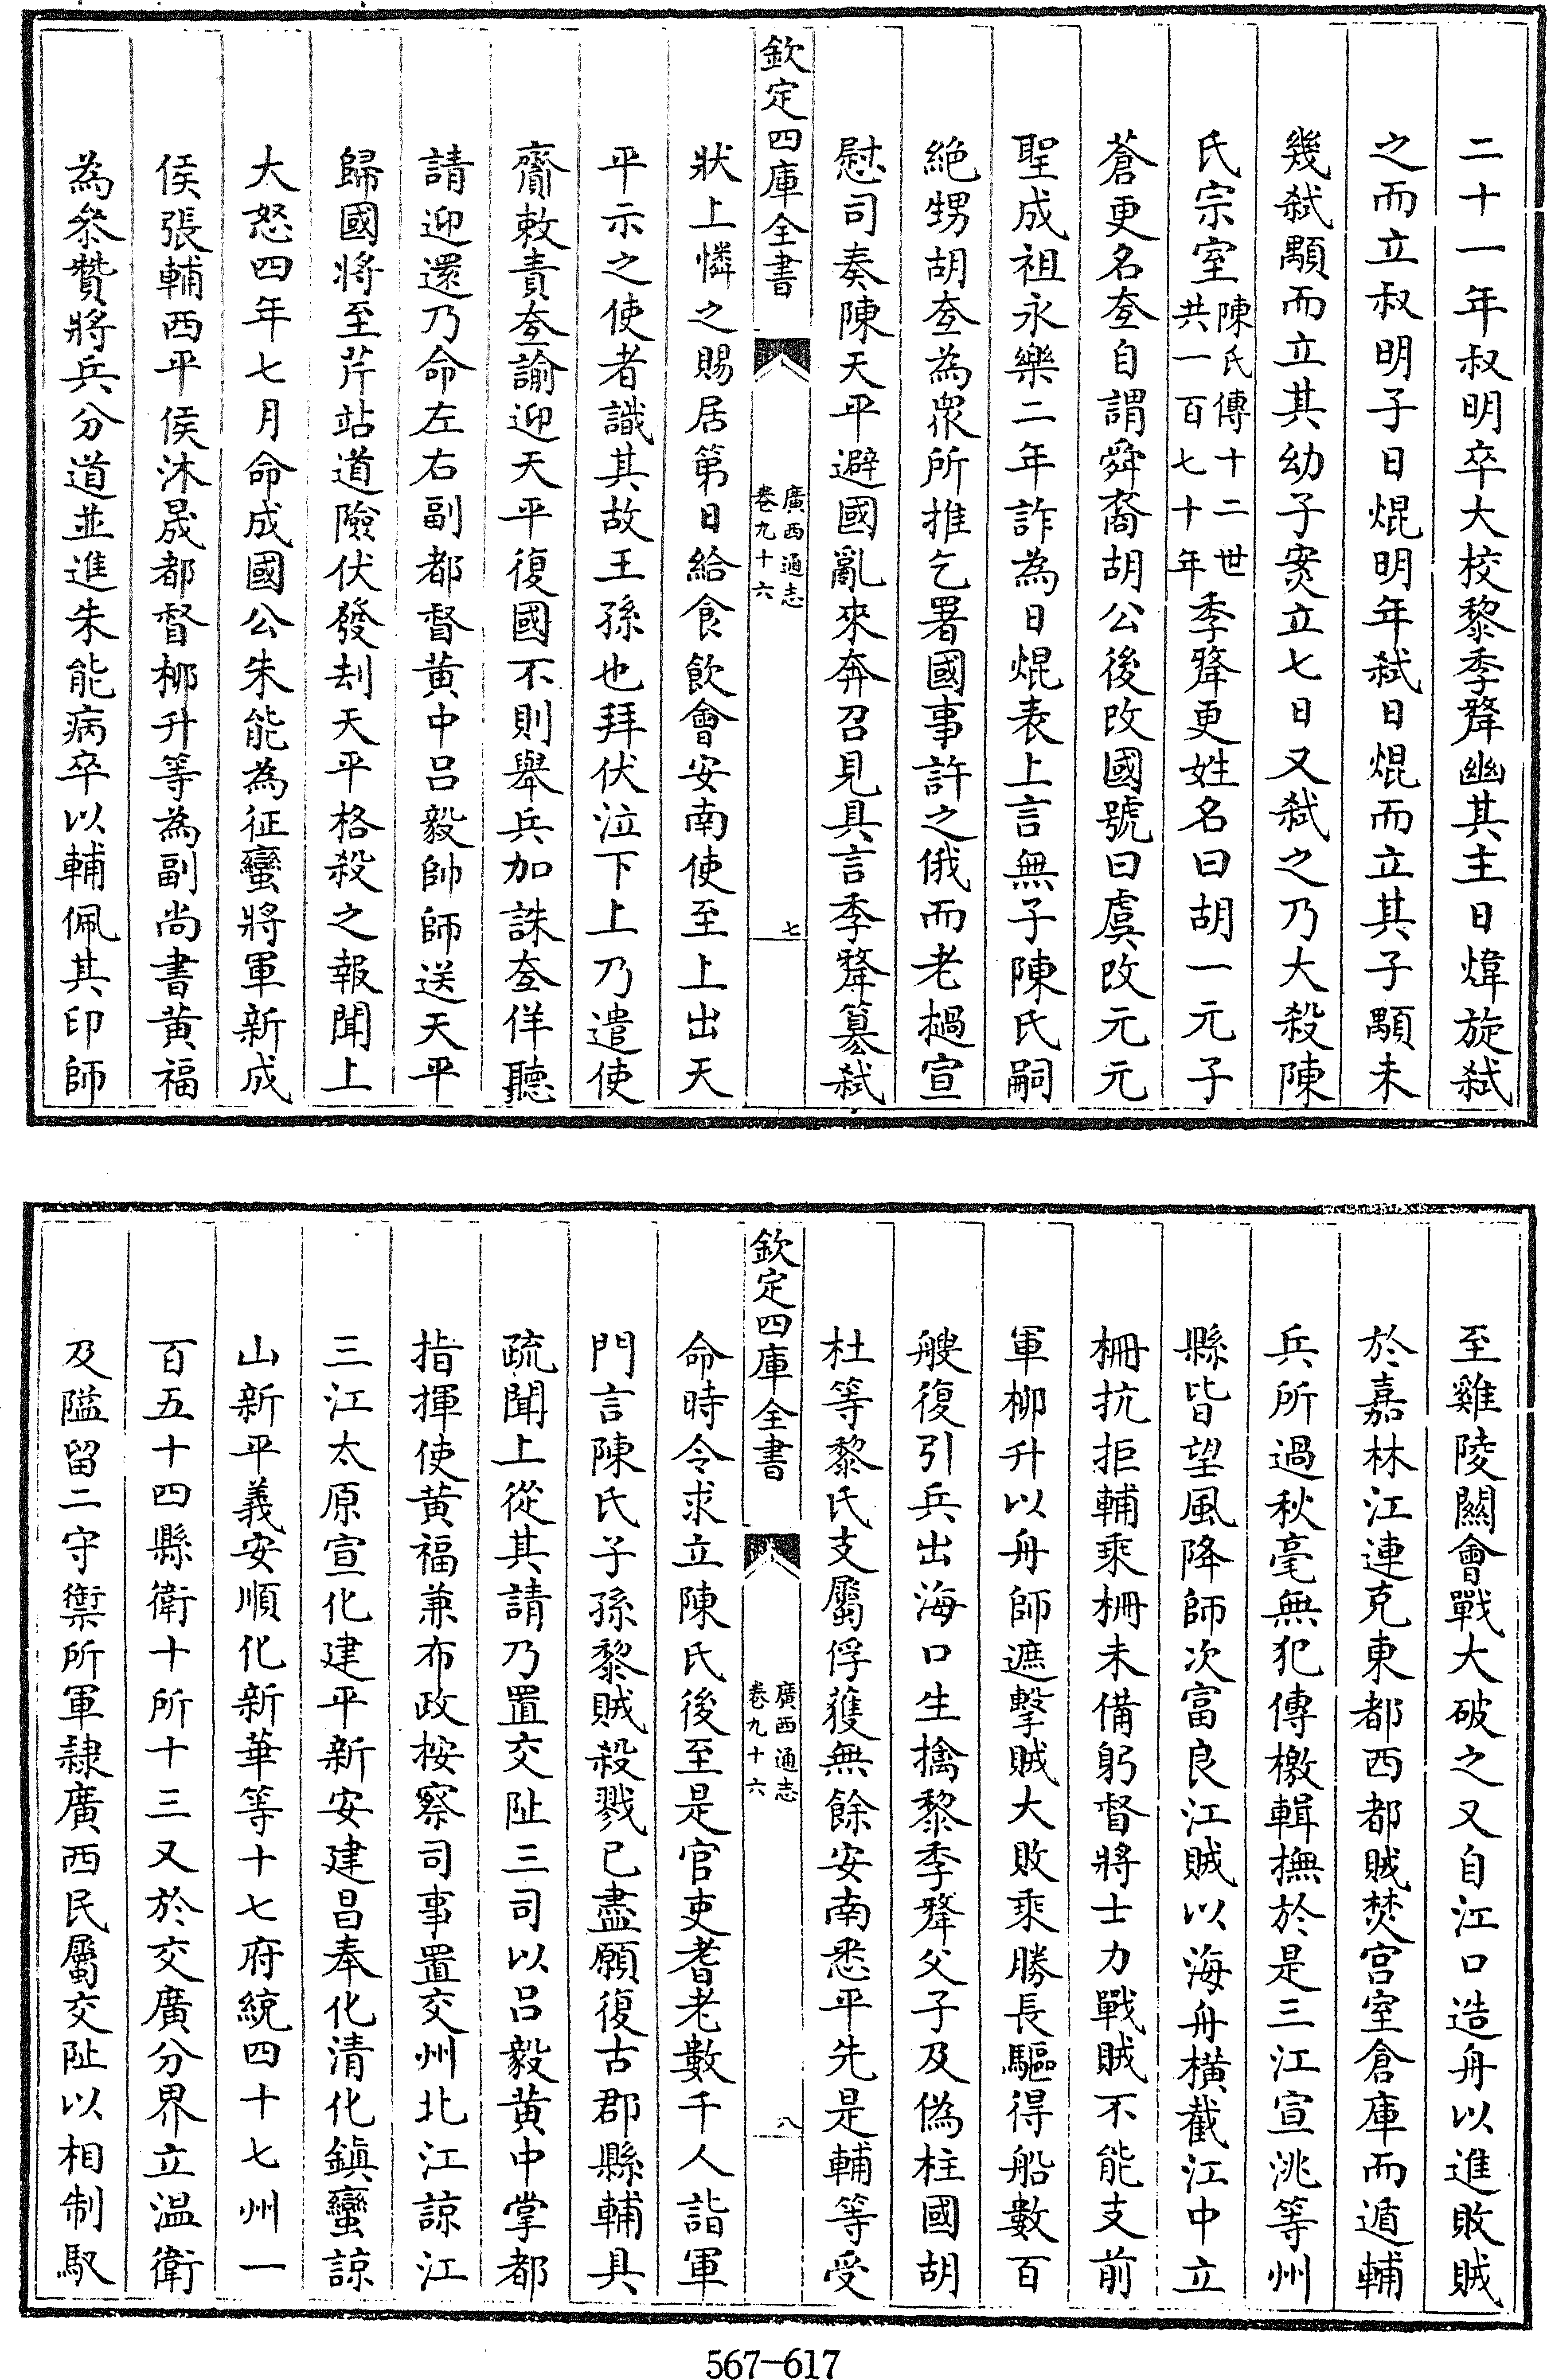 二十一年叔明卒大校黎季犛幽其主日煒旋弑
之而立叔明子日焜明年弑日焜而立其子顒未
幾弑顒而立其幼子𡪁立七日又弑之乃大殺陳
氏宗室陳氏傳十二世共一百七十年季犛更姓名曰胡一元子
蒼更名奃自謂舜裔胡公後改國號曰虞改元元
聖成祖永樂二年詐為日焜表上言無子陳氏嗣
絶甥胡奃為衆所推乞署國事許之俄而老撾宣
慰司奏陳天平避國亂來奔召見具言季犛簒弑
欽定四庫全書
廣西通志
卷九十六
七
狀上憐之賜居第日給食飲會安南使至上出天
平示之使者識其故王孫也拜伏泣下上乃遣使
齎敕責奃諭迎天平復國不則舉兵加誅奃佯聽
請迎還乃命左右副都督黄中吕毅帥師送天平
歸國將至芹站道險伏發刦天平格殺之報聞上
大怒四年七月命成國公朱能為征蠻將軍新成
侯張輔西平侯沐晟都督柳升等為副尚書黄福
為叅贊將兵分道並進朱能病卒以輔佩其印師
至雞陵關會戰大破之又自江口造舟以進敗賊
於嘉林江連克東都西都賊焚宫室倉庫而遁輔
兵所過秋毫無犯傳檄輯撫於是三江宣洮等州
縣皆望風降師次富良江賊以海舟横截江中立
栅抗拒輔乘栅未備躬督將士力戰賊不能支前
軍柳升以舟師遮擊賊大敗乘勝長驅得船數百
艘復引兵出海口生擒黎季犛父子及偽柱國胡
杜等黎氏支屬俘獲無餘安南悉平先是輔等受
欽定四庫全書
廣西通志
卷九十六
八
命時令求立陳氏後至是官吏耆老數千人詣軍
門言陳氏子孫黎賊殺戮已盡願復古郡縣輔具
疏聞上從其請乃置交阯三司以吕毅黄中掌都
指揮使黄福兼布政按察司事置交州北江諒江
三江太原宣化建平新安建昌奉化清化鎮蠻諒
山新平義安順化新華等十七府統四十七州一
百五十四縣衛十所十三又於交廣分界立温衛
及隘留二守禦所軍隸廣西民屬交阯以相制馭
567-617